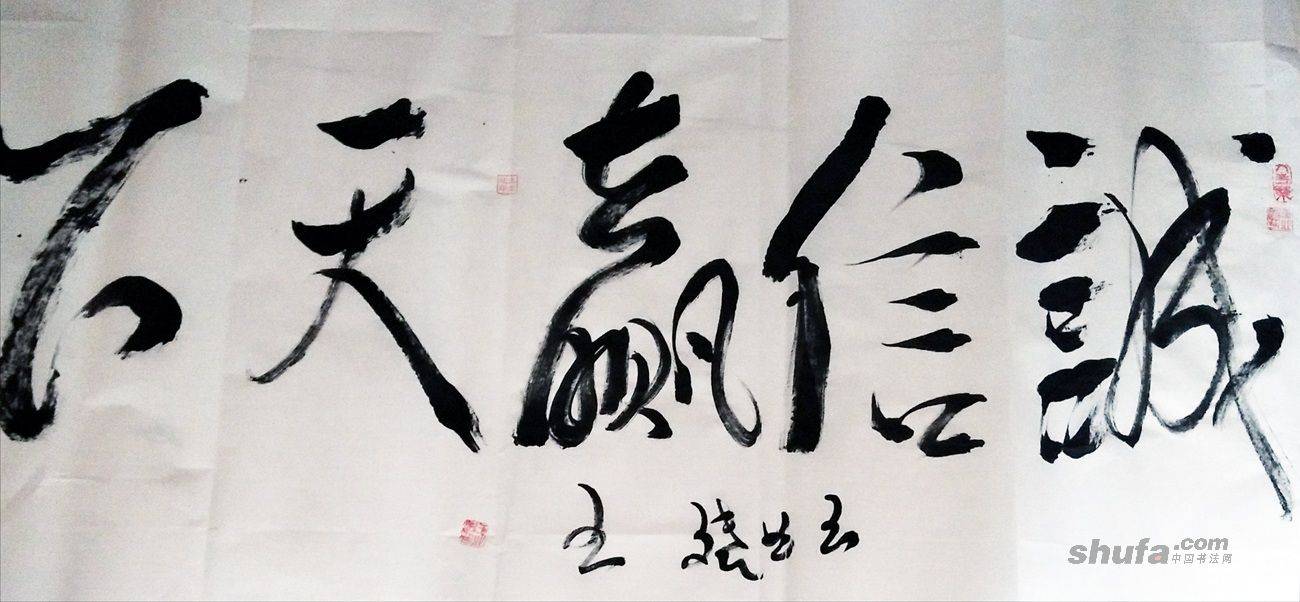 誠信赢天下
shufa.com
中国书法网